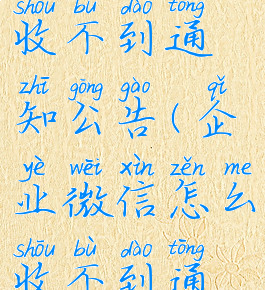 shōu bù dào tōng
收不到通
zhī gōng gào qǐ
知公告(企
yè wēi xìn zěn me
业微信怎么
shōu bù dào tōng
收不到通